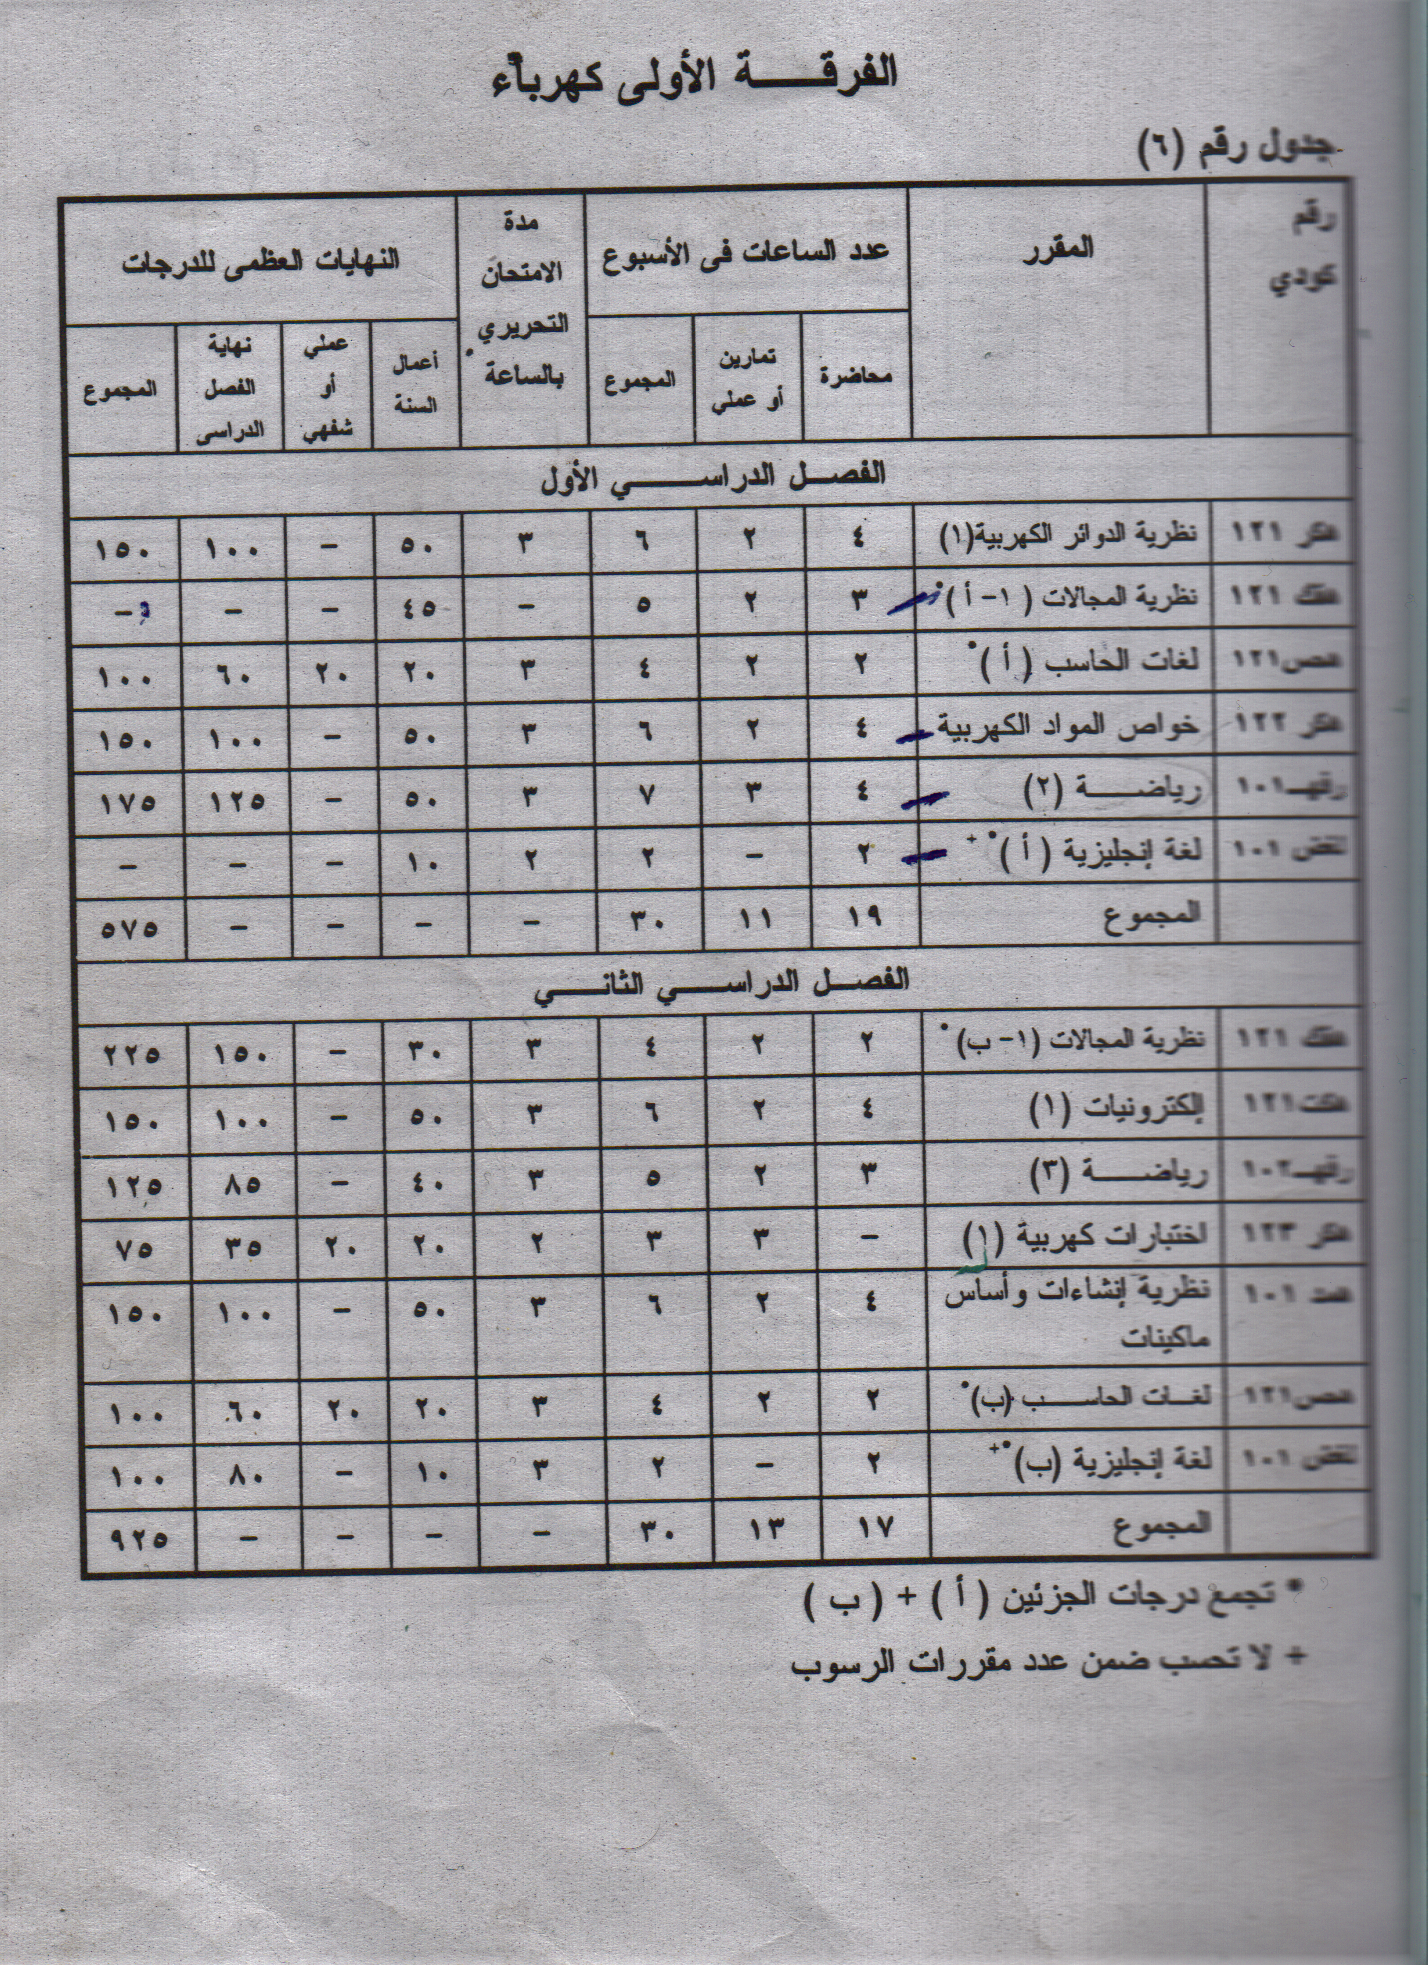 الفرقة الأولى كهرباء
جدول رقم (٦)
رقم كودي | المقرر | عدد الساعات فى الأسبوع | مدة الامتحان التحريري بالساعة | النهايات العظمى للدرجات
محاضرة | تمارين أو عملي | المجموع | أعمال السنة | عملي أو شفهي | نهاية الفصل الدراسى | المجموع
الفصل الدراسي الأول
هكر ١٢١ | نظرية الدوائر الكهربية(١) | ٤ | ٢ | ٦ | ٣ | ٥٠ | – | ١٠٠ | ١٥٠
١٢١ | نظرية المجالات (١- أ)* | ٣ | ٢ | ٥ | – | ٤٥ | – | – | –
هحص١٢١ | لغات الحاسب (أ)* | ٢ | ٢ | ٤ | ٣ | ٢٠ | ٢٠ | ٦٠ | ١٠٠
هكر ١٢٢ | خواص المواد الكهربية | ٤ | ٢ | ٦ | ٣ | ٥٠ | – | ١٠٠ | ١٥٠
رفهـ١٠١ | رياضة (٢) | ٤ | ٣ | ٧ | ٣ | ٥٠ | – | ١٢٥ | ١٧٥
١٠١ | لغة إنجليزية (أ)*+ | ٢ | – | ٢ | ٢ | ١٠ | – | – | –
المجموع | ١٩ | ١١ | ٣٠ | – | – | – | – | ٥٧٥
الفصل الدراسي الثاني
١٢١ | نظرية المجالات (١- ب)* | ٢ | ٢ | ٤ | ٣ | ٣٠ | – | ١٥٠ | ٢٢٥
هكت١٢١ | إلكترونيات (١) | ٤ | ٢ | ٦ | ٣ | ٥٠ | – | ١٠٠ | ١٥٠
رفهـ١٠٢ | رياضة (٣) | ٣ | ٢ | ٥ | ٣ | ٤٠ | – | ٨٥ | ١٢٥
هكر ١٢٣ | اختبارات كهربية (١) | – | ٣ | ٣ | ٢ | ٢٠ | ٢٠ | ٣٥ | ٧٥
١٠١ | نظرية إنشاءات وأساس ماكينات | ٤ | ٢ | ٦ | ٣ | ٥٠ | – | ١٠٠ | ١٥٠
هحص١٢١ | لغات الحاسب (ب)* | ٢ | ٢ | ٤ | ٣ | ٢٠ | ٢٠ | ٦٠ | ١٠٠
١٠١ | لغة إنجليزية (ب)*+ | ٢ | – | ٢ | ٣ | ١٠ | – | ٨٠ | ١٠٠
المجموع | ١٧ | ١٣ | ٣٠ | – | – | – | – | ٩٢٥
* تجمع درجات الجزئين (أ) + (ب)
+ لا تحسب ضمن عدد مقررات الرسوب